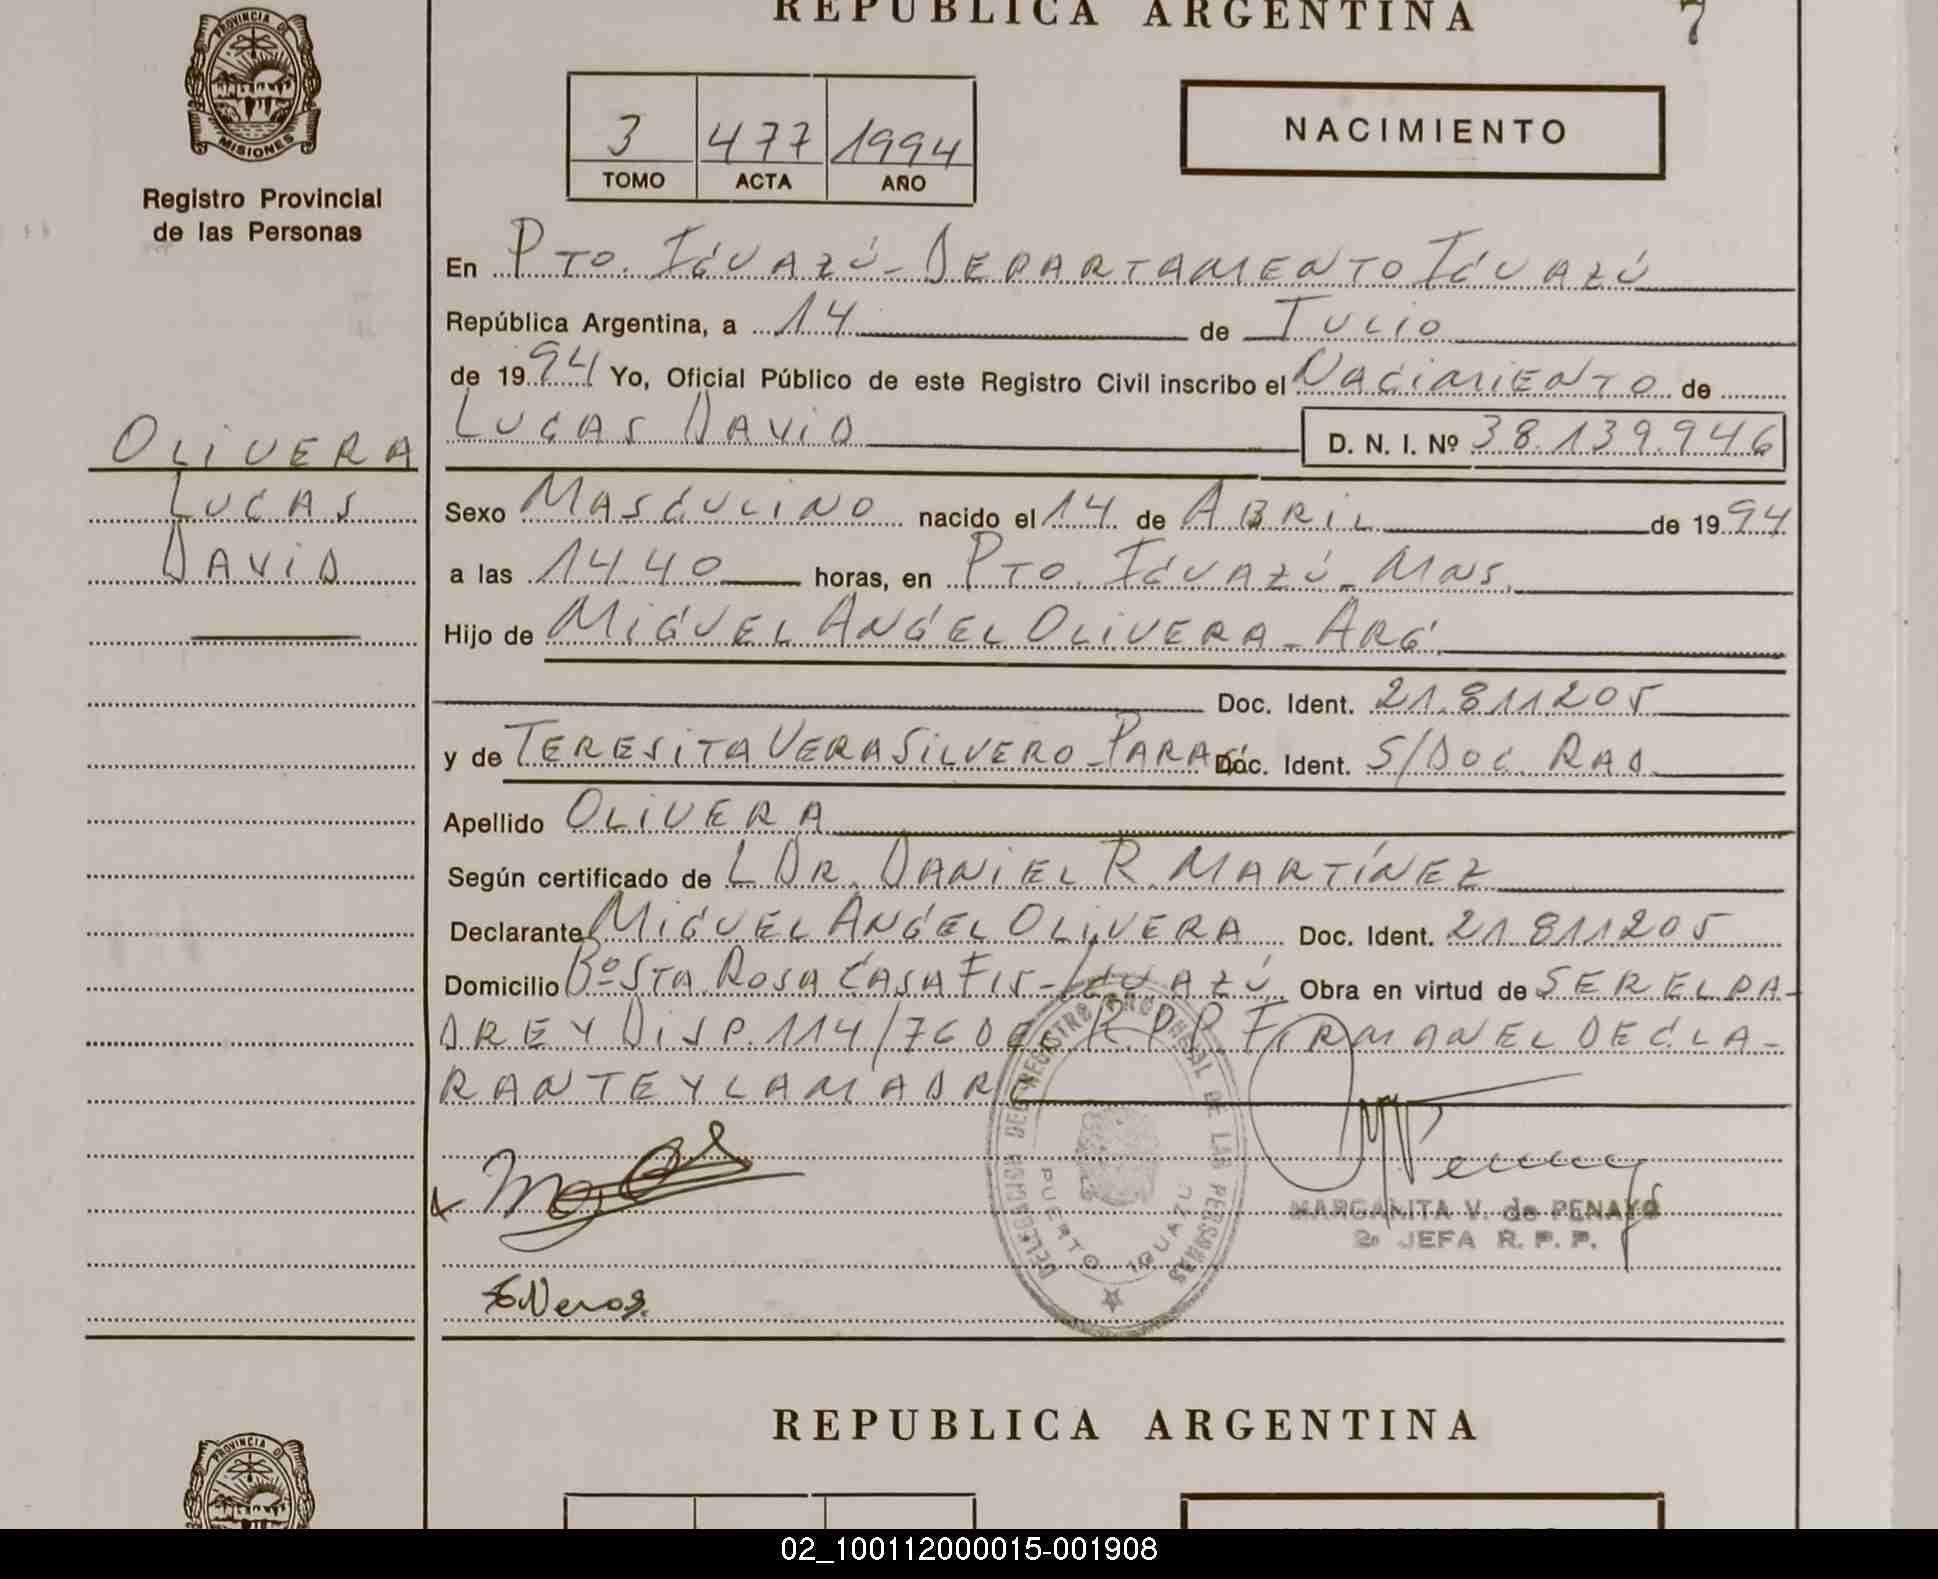 REPUBLICA ARGENTINA
7
PROVINCIA DE
MISIONES
Registro Provincial
de las Personas
3 477 1994
TOMO ACTA AÑO
NACIMIENTO
En PTO. IGUAZÚ - DEPARTAMENTO IGUAZÚ
República Argentina, a 14 de JULIO
de 1994 Yo, Oficial Público de este Registro Civil inscribo el NACIMIENTO de
LUCAS DAVID D. N. I. Nº 38.139.946
OLIVERA
LUCAS
DAVID
Sexo MASCULINO nacido el 14 de ABRIL de 1994
a las 14.40 horas, en PTO. IGUAZÚ - MNS.
Hijo de MIGUEL ANGEL OLIVERA - ARG.
Doc. Ident. 21.811.205
y de TERESITA VERA SILVERO - PARAG. Doc. Ident. S/DOC. RAD.
Apellido OLIVERA
Según certificado de L DR. DANIEL R. MARTÍNEZ
Declarante MIGUEL ANGEL OLIVERA Doc. Ident. 21 811205
Domicilio Bº STA ROSA CASA F15 - IGUAZÚ Obra en virtud de SER EL PA-
DRE Y DISP. 114/76 DEL R.P.P. FIRMAN EL DECLA-
RANTE Y LA MADRE
DELEGACION DEL REGISTRO PROVINCIAL DE LAS PERSONAS
PUERTO IGUAZU
MARGARITA V. de PENAYO
2º JEFA R. P. P.
REPUBLICA ARGENTINA
PROVINCIA DE
02_100112000015-001908